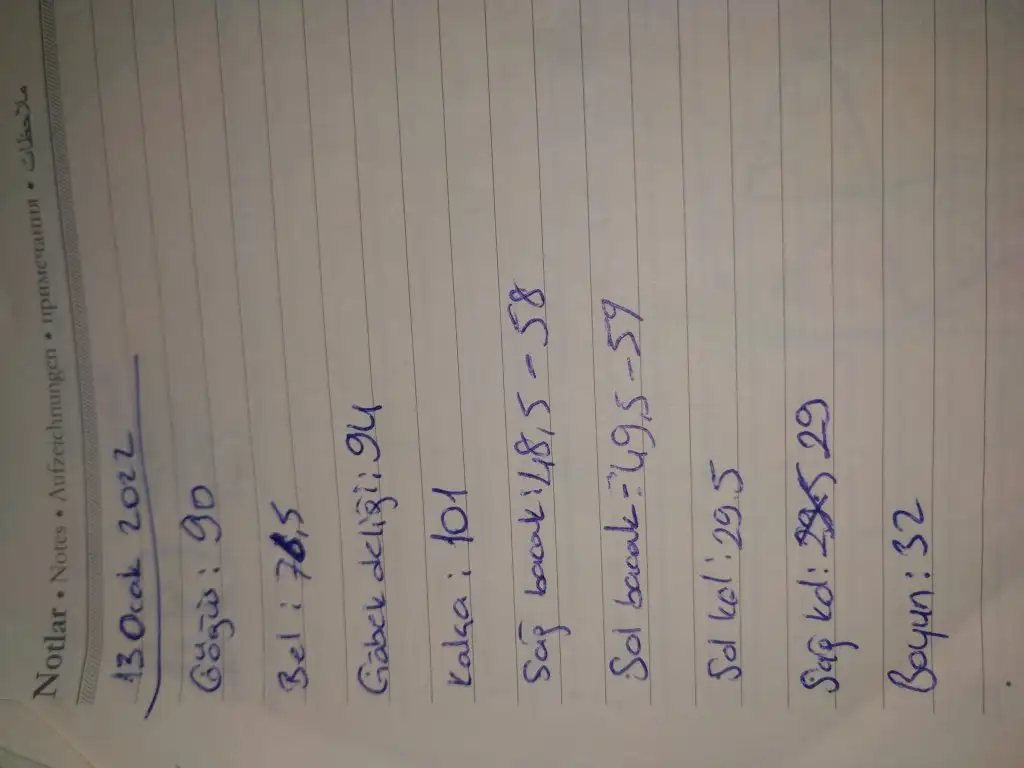 Notlar • Notes • Aufzeichnungen • примечания • ملاحظات
13 Ocak 2022
Göğüs : 90
Bel : 78,5
Göbek deliği : 94
Kalça : 101
Sağ bacak : 48,5 - 58
Sol bacak = 49,5 - 59
Sol kol : 29.5
Sağ kol : 29
Boyun : 32